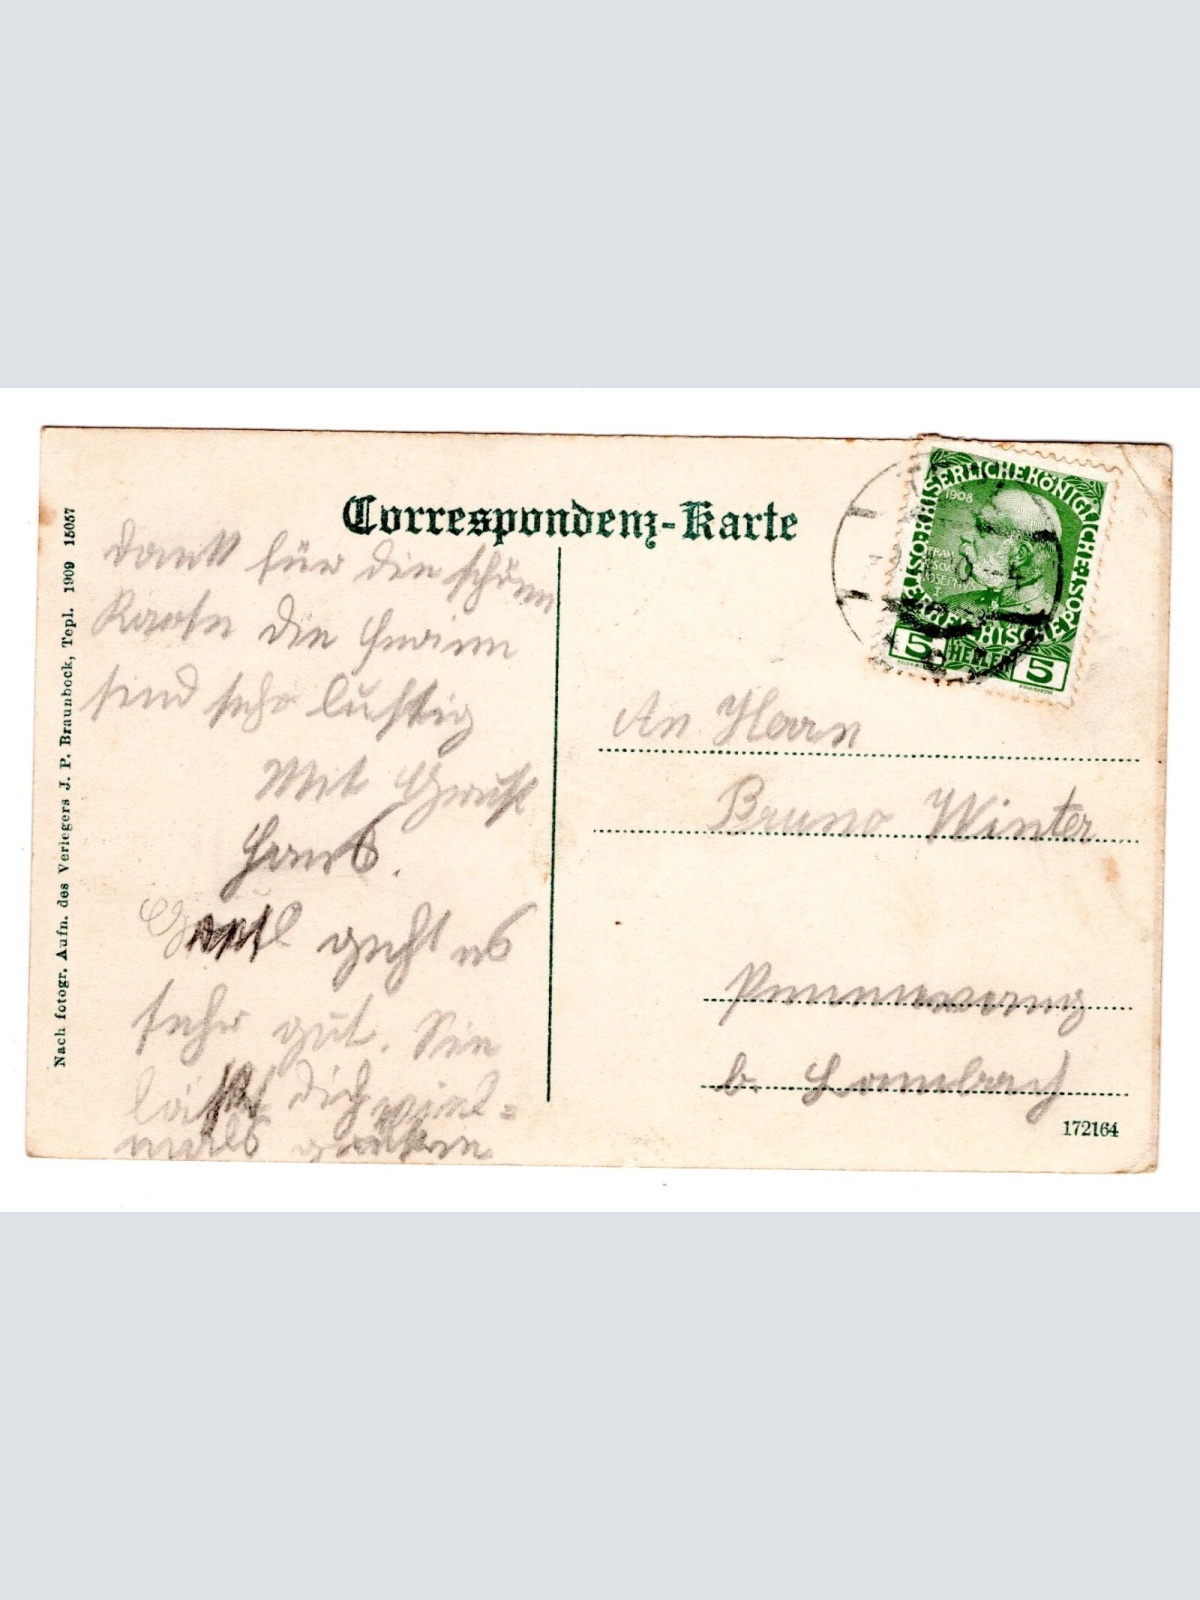 Correspondenz-Karte
Nach fotogr. Aufn. des Verlegers J. P. Braunbock, Tepl. 1909 15057
Dank für die schönen
Karten die Ferien
sind sehr lustig
Mit Gruß
Hans.
geht es
sehr gut. Sie
läßt Dich viel=
mals grüßen.
KAISERLICHE KÖNIGLICHE ÖSTERREICHISCHE POST
1908
FRANZ JOSEPH I
5 HELLER 5
An Herrn
Bruno Winter
b. Lambach
172164